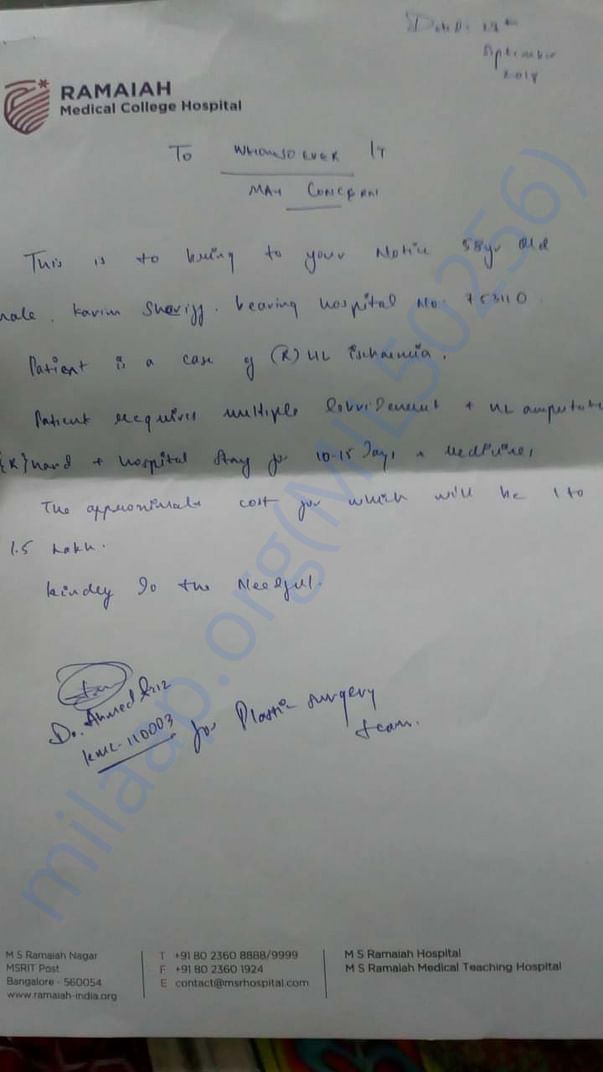 September
2018
RAMAIAH
Medical College Hospital
To WHOMSOEVER IT
MAY CONCERN
This is to bring to your Notice 58yr old
male. Karim Shariff. bearing hospital No.
Patient is a case of (R) UL ischaemia.
Patient requires multiple + UL amputat
(R) hand + hospital stay for 10-15 days + Medicines
The approximate cost for which will be 1 to
1.5 Lakh.
kindly do the Needful.
Dr. Ahmed
KMC-110003
for Plastic surgery
team.
milaap.org(MIL50256)
M S Ramaiah Nagar
MSRIT Post
Bangalore - 560054
www.ramaiah-india.org
T +91 80 2360 8888/9999
F +91 80 2360 1924
E contact@msrhospital.com
M S Ramaiah Hospital
M S Ramaiah Medical Teaching Hospital